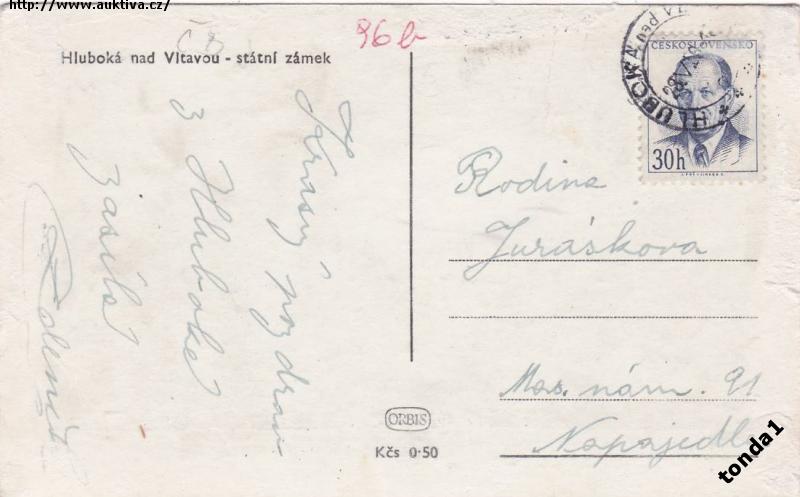 http://www.auktiva.cz/
96b
Hluboká nad Vltavou - státní zámek
Krásný pozdrav
z Hluboké
zasílá
ČESKOSLOVENSKO
30h
HLUBOKÁ NAD VLT
Rodina
Juráskova
Mas. nám. 91
Napajedl
ORBIS
Kčs 0·50
tonda1